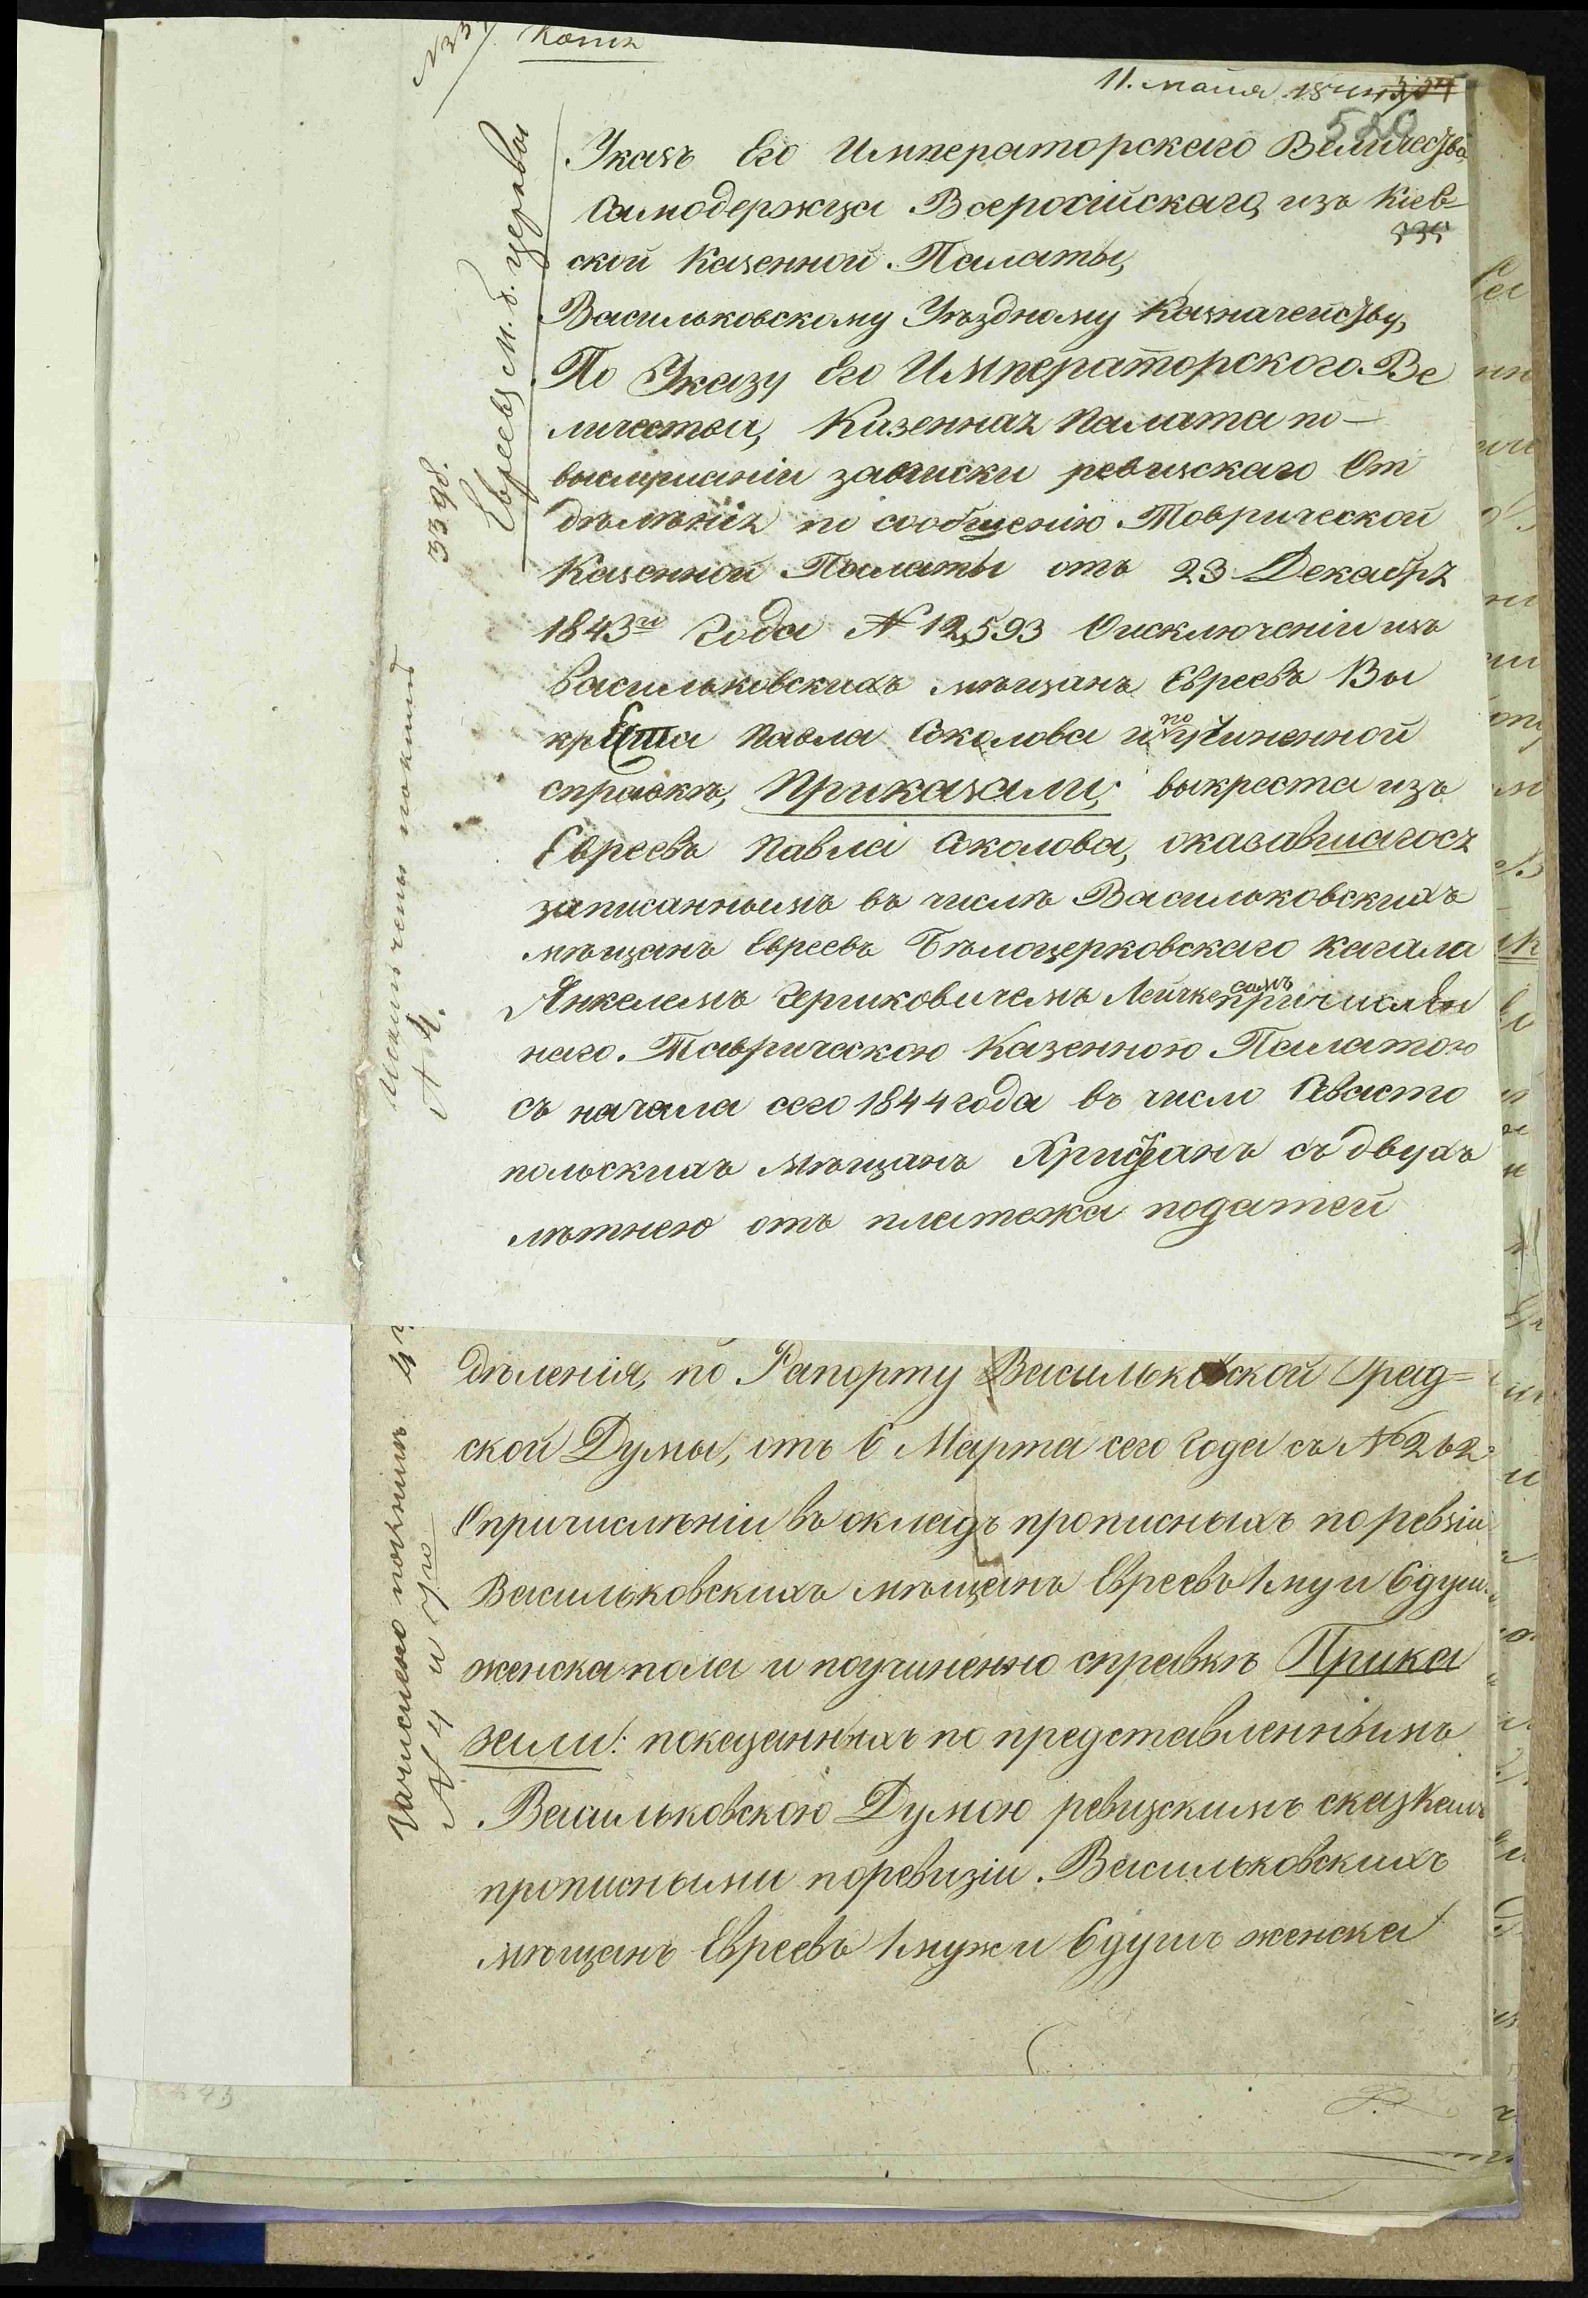 Копія
11. маия 1844
520
Указъ Его Императорскаго Величества,
Самодержца Всеросійскаго, изъ Кіев-
535
ской Казенной Палаты,
Васильковскому Уѣздному Казначейству,
По Указу Его Императорского Ве
личества, Казенная Палата по-
выслушаніи записки ревизскаго От
дѣлѣнія по сообщенію Товрической
Казенной Палаты отъ 23 Декабря
1843го Года № 12,593 О исключеніи изъ
Васильковскихъ мѣщанъ Евреевъ Вы
крЕста Павла Соколова и по учиненной
справкѣ, Приказали, выкреста изъ
Евреевъ Павла Соколова, оказавшагося
записаннымъ въ числѣ Васильковскихъ
мѣщанъ Евреевъ Бѣлоцерковскаго кагала
Янкелемъ Гершковичемъ Лейчке самъ причислен
наго. Таврическою Казенною Палатою
съ начала сего 1844 года въ число Севасто
польскихъ мѣщанъ Христіанъ съ двухъ
лѣтнею отъ платежа податей
Евреевъ м. б. церквы
3398.
Исключены
№ 4.
дѣленія, по Рапорту Васильковской Град=
ской Думы, отъ 6 Марта сего Года съ № 262
О причислѣніи въ окладъ прописныхъ по ревзіи
Васильковскихъ мѣщанъ Евреевъ 1 му и 6 душ.
женска пола и поучиненно справкѣ Прика
зали: показанныхъ по представленнымъ
Васильковскою Думою ревизскимъ сказкамъ
прописными поревизіи Васильковскихъ
мѣщанъ Евреевъ 1 муж и 6 душъ женска
Зачислено
№ 4 и 7го